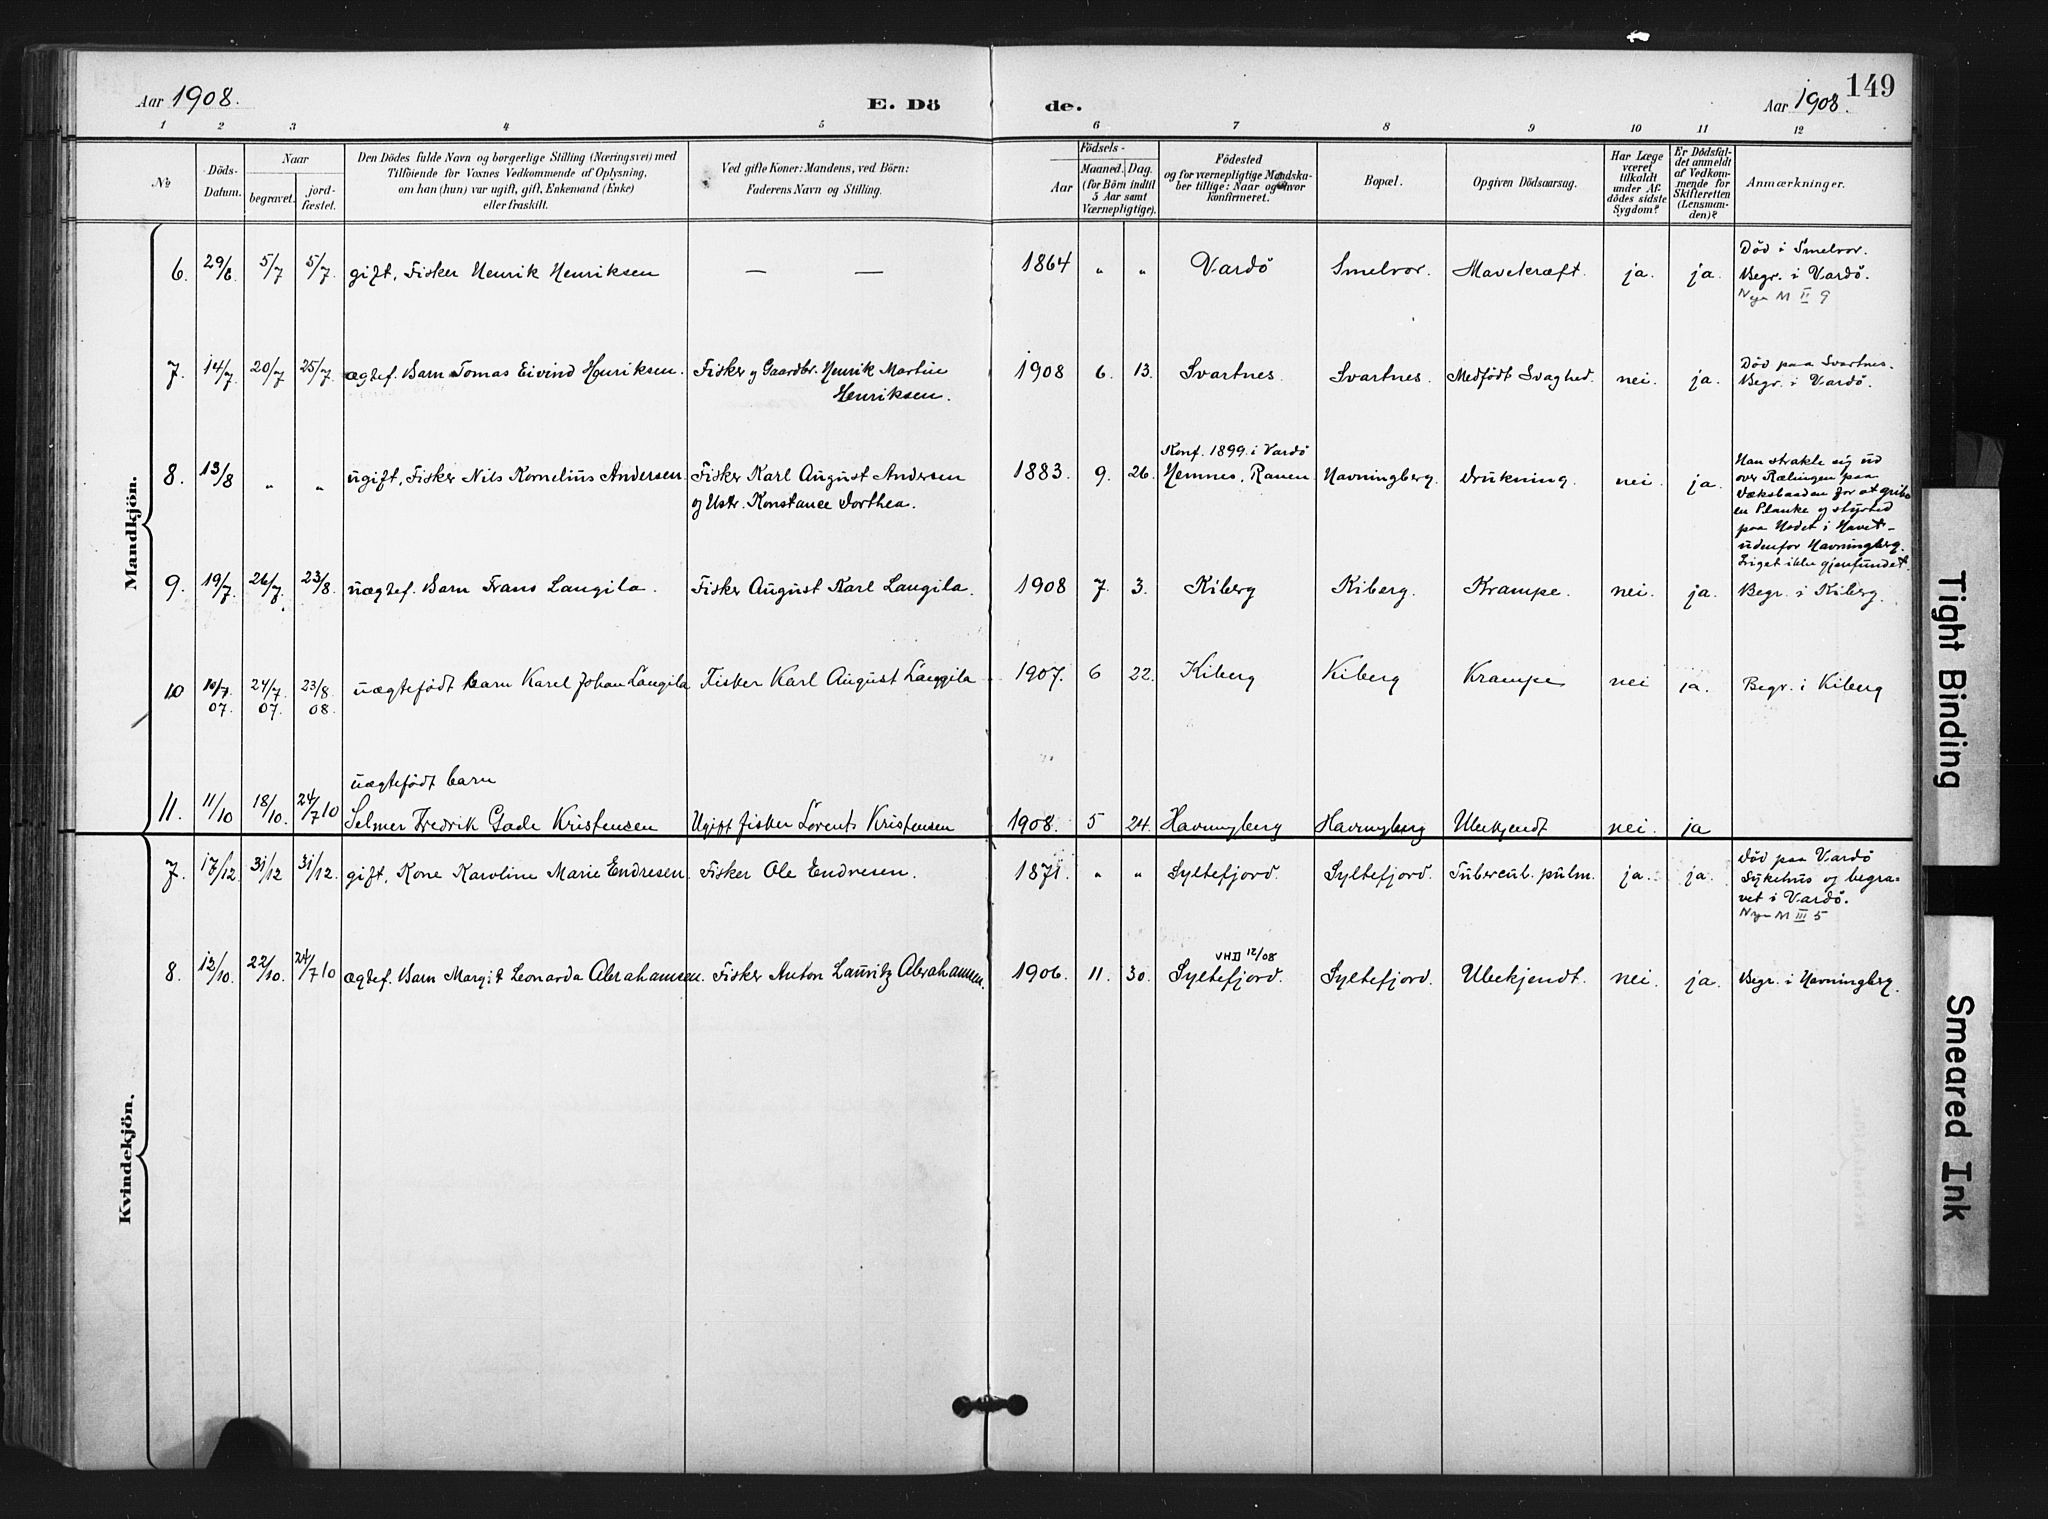 149
Aar 1908.
E. Dö
de.
Aar 1908.
1 2 3 4 5 6 7 8 9 10 11 12
No
Döds-
Datum.
Naar
begravet.
jord-
fæstet.
Den Dödes fulde Navn og borgerlige Stilling (Næringsvei) med
Tilföiende for Voxnes Vedkommende af Oplysning,
om han (hun) var ugift, gift, Enkemand (Enke)
eller fraskilt.
Ved gifte Koner: Mandens, ved Börn:
Faderens Navn og Stilling.
Födsels-
Aar
Maaned. Dag.
(for Börn indtil
5 Aar samt
Værnepligtige).
Födested
og for værnepligtige Mandska-
ber tillige: Naar og hvor
konfirmeret.
Bopæl.
Opgiven Dödsaarsag.
Har Læge
været
tilkaldt
under Af-
dödes sidste
Sygdom?
Er Dödsfal-
det anmeldt
af Vedkom-
mende for
Skifteretten
(Lensman-
den)?
Anmærkninger.
Mandkjön.
6. 29/6 5/7 5/7 gift, Fisker Henrik Henriksen — — 1864 " " Vardö Smelvor. Mavekræft. ja. ja.
Död i Smelvor.
Begr. i Vardö.
M II 9
7. 14/7 20/7 25/7 ægtef. Barn Tomas Eivind Henriksen. Fisker og Gaardbr. Henrik Martin
Henriksen.
1908 6. 13. Svartnes. Svartnes. Medfödt Svaghed. nei. ja.
Död paa Svartnes.
Begr. i Vardö.
8. 13/8 " " ugift, Fisker Nils Kornelius Andersen Fisker Karl August Andersen
og Ustr. Konstance Dorthea.
Konf. 1899. i Vardö
1883. 9. 26. Hemnes, Ranen Havningberg. Drukning. nei. ja.
Han strakte sig ud
over Rælingen paa
Vækstbaaden for at gribe
en Planke og styrted
paa Hodet i Havet
udenfor Havningberg.
Liget ikke gjenfundet.
9. 19/7. 26/7 23/8. uægtef. Barn Frans Langila. Fisker August Karl Langila.
1908 7. 3. Kiberg Kiberg. Krampe. nei. ja. Begr. i Kiberg.
10 10/7. 07. 24/7 07. 23/8. 08. uægtefödt barn Karel Johan Långila Fisker Karl August Långgila
1907. 6 22. Kiberg Kiberg Krampe nei ja. Begr. i Kiberg
uægtefödt barn
11. 11/10 18/10. 24/7 10 Selmer Fredrik Gade Kristensen Ugift fisker Lorents Kristensen
1908. 5 24. Havningberg Havningberg Ubekjendt nei. ja
Kvindekjön.
7. 17/12 31/12 31/12. gift, Kone Karoline Marie Endresen. Fisker Ole Endresen.
1871. " " Syltefjord. Syltefjord. Tubercul. pulm. ja. ja.
Död paa Vardö
Sykehus og begra-
vet i Vardö.
M III 5
8. 12/10. 22/10. 24/7 10 ægtef. Barn Margit Leonarda Abrahamsen. Fisker Anton Lauritz Abrahamsen.
VH II 12/08
1906. 11. 30. Syltefjord. Syltefjord. Ubekjendt. nei. ja. Begr. i Havningberg.
Tight Binding
Smeared Ink